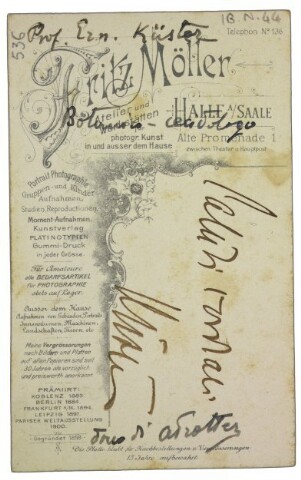 IB.N-44
536
Prof. Ern. Küster
Telephon Nº 136
Fritz Möller
Atelier und
Werkstätten
HALLE A/SAALE
Botanico - cecidologo
photogr. Kunst
in und ausser dem Hause
Alte Promenade 1
zwischen Theater u. Hauptpost.
Portrait Photographie
Gruppen- und Kinder
Aufnahmen.
Studien, Reproductionen
Moment-Aufnahmen,
Kunstverlag
PLATINOTYPIEN
Gummi-Druck
in jeder Grösse.
Für Amateure
alle BEDARFSARTIKEL
für PHOTOGRAPHIE
stets auf Lager.
Ausser dem Hause
Aufnahme von Gebäuden,
Maschinen,
Landschaften, Tieren, etc.
Meine Vergrösserungen
nach Bildern und Platten
auf allen Papieren sind seit
30 Jahren als vorzüglich
und preiswerth anerkannt.
PRÄMIIRT:
KOBLENZ 1865.
BERLIN 1891.
FRANKFURT A/M. 1894.
LEIPZIG 1891.
PARISER WELTAUSSTELLUNG
1900.
Gegründet
Küster
dono di A. Trotter
Die Platte bleibt für Nachbestellungen u. Vergrösserungen
15 Jahre aufbewahrt.